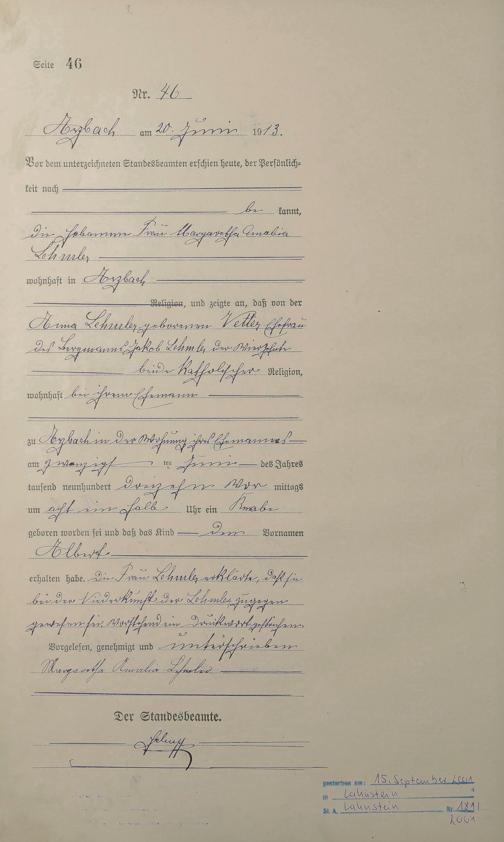 Seite 46
Nr. 46
Arzbach am 20. Juni 1913.
Vor dem unterzeichneten Standesbeamten erschien heute, der Persönlich-
keit nach
be kannt,
die Hebamme Frau Margaretha Amalia
Lehmler
wohnhaft in Arzbach
Religion, und zeigte an, daß von der
Anna Lehmler geborenen Vetter Ehefrau
des Bergmanns Jakob Lehmler der
beide katholischer Religion,
wohnhaft bei ihrem Ehemann
zu Arzbach in der Wohnung ihres Ehemannes
am zwanzigsten Juni des Jahres
tausend neunhundert dreizehn Vor mittags
um acht ein halb Uhr ein Knabe
geboren worden sei und daß das Kind den Vornamen
Albert
erhalten habe. Die Frau Lehmler erklärte, daß sie
bei der Niederkunft der Lehmler zugegen
gewesen sei. Vorstehend ein Druckwort gestrichen.
Vorgelesen, genehmigt und unterschrieben
Margaretha Amalia Lehmler
Der Standesbeamte.
gestorben am: 15. September 2001
in Lahnstein
St. A. Lahnstein Nr 181/
2001